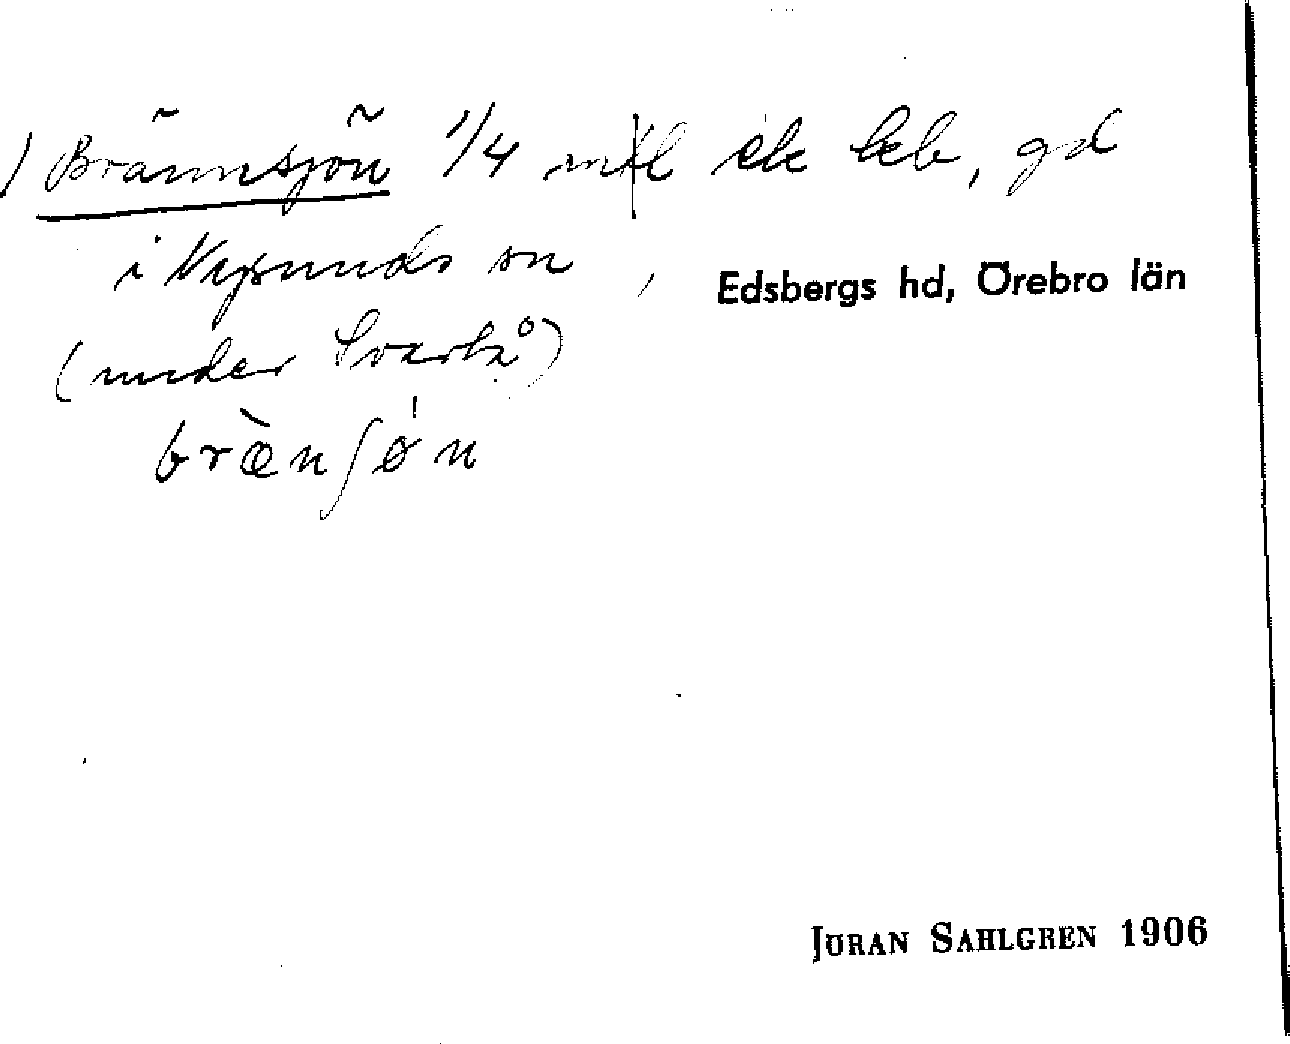 ) Brännsjön 1/4 mtl sk lcb, gd
i Nysunds sn , Edsbergs hd, Örebro län
(under Svartå)
bræ̀nʃø̀n
JÖRAN SAHLGREN 1906